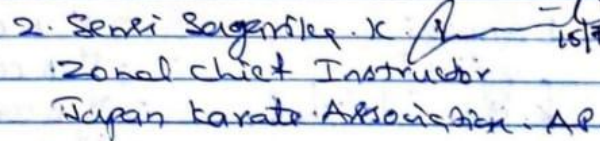 2. Sensi Sagarika. K. 15/
Zonal Chief Instructor
Japan Karate Association. AP